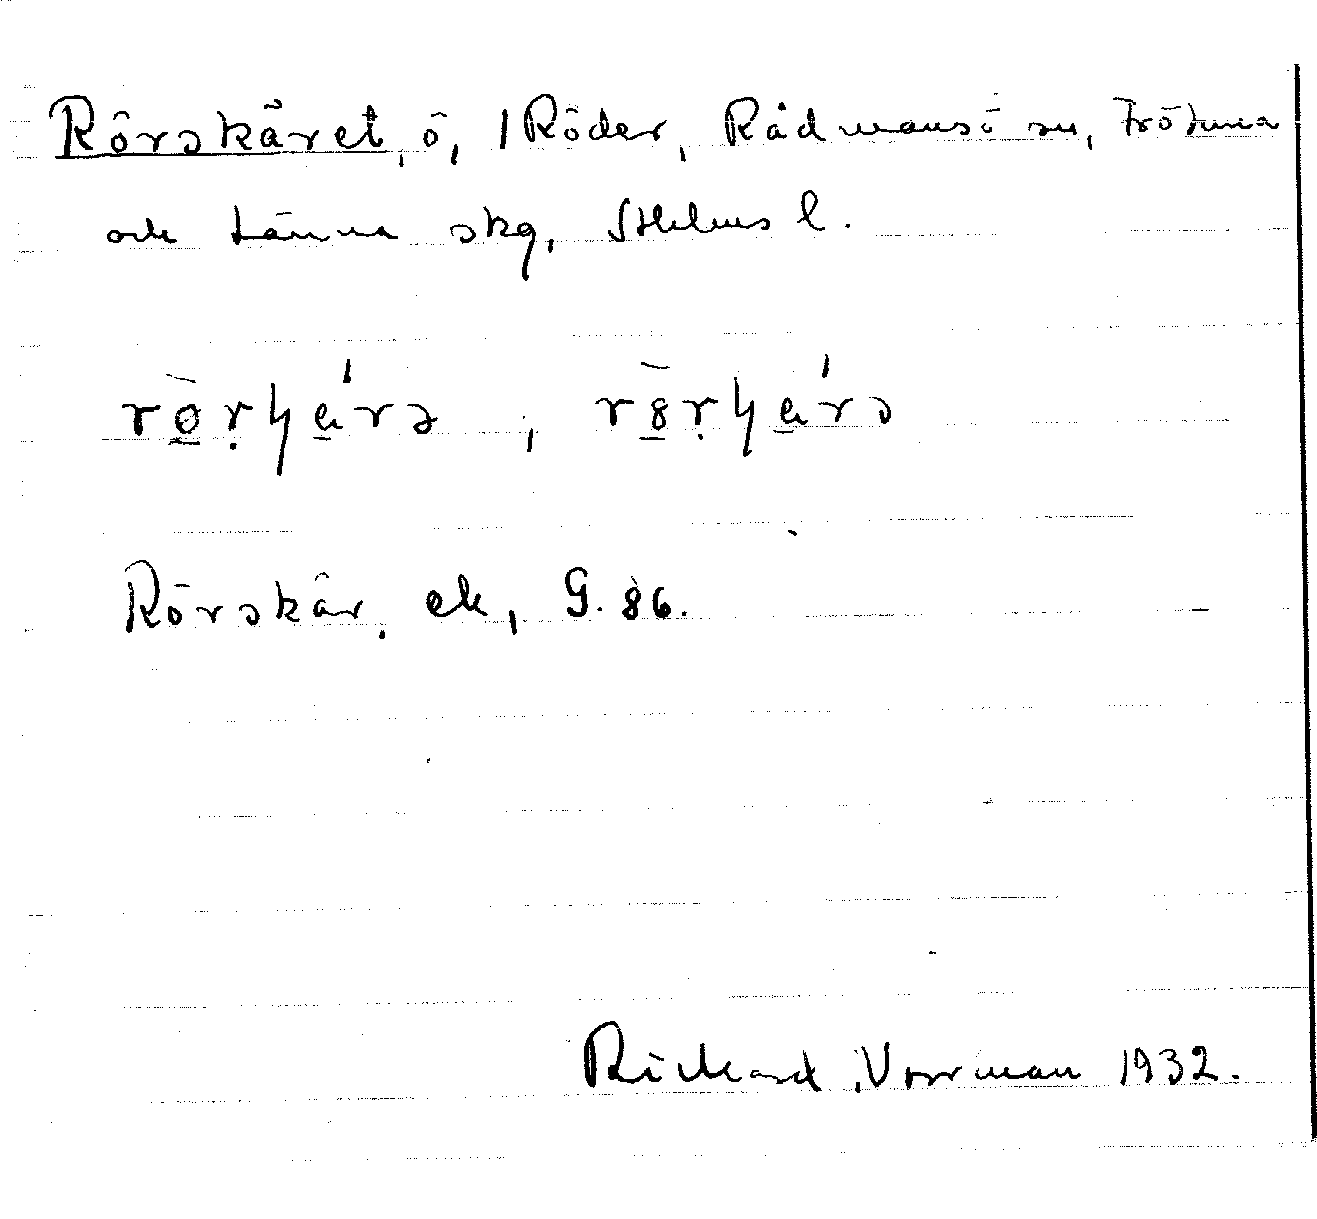 Rörskäret, ö, i Röder, Rådmansö sn, Frötuna
och Länna skg, Sthlms l.
rö̀rɧä́rə, rȍrɧä́rə
Rörskär. ek, G. 86.
Rickard Norrman 1932.